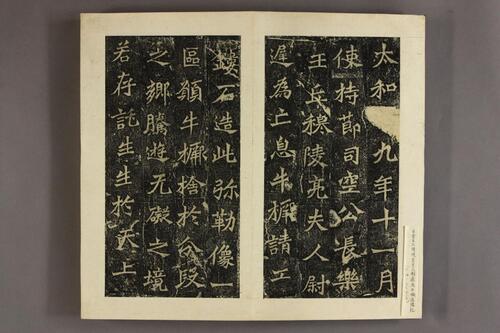 太和九年十一月
使持節司空公長樂
王丘穆陵亮夫人尉
遲為亡息牛橛請工
鏤石造此弥勒像一
區願牛橛捨於分段
之鄉騰遊无礙之境
若存託生生於天上